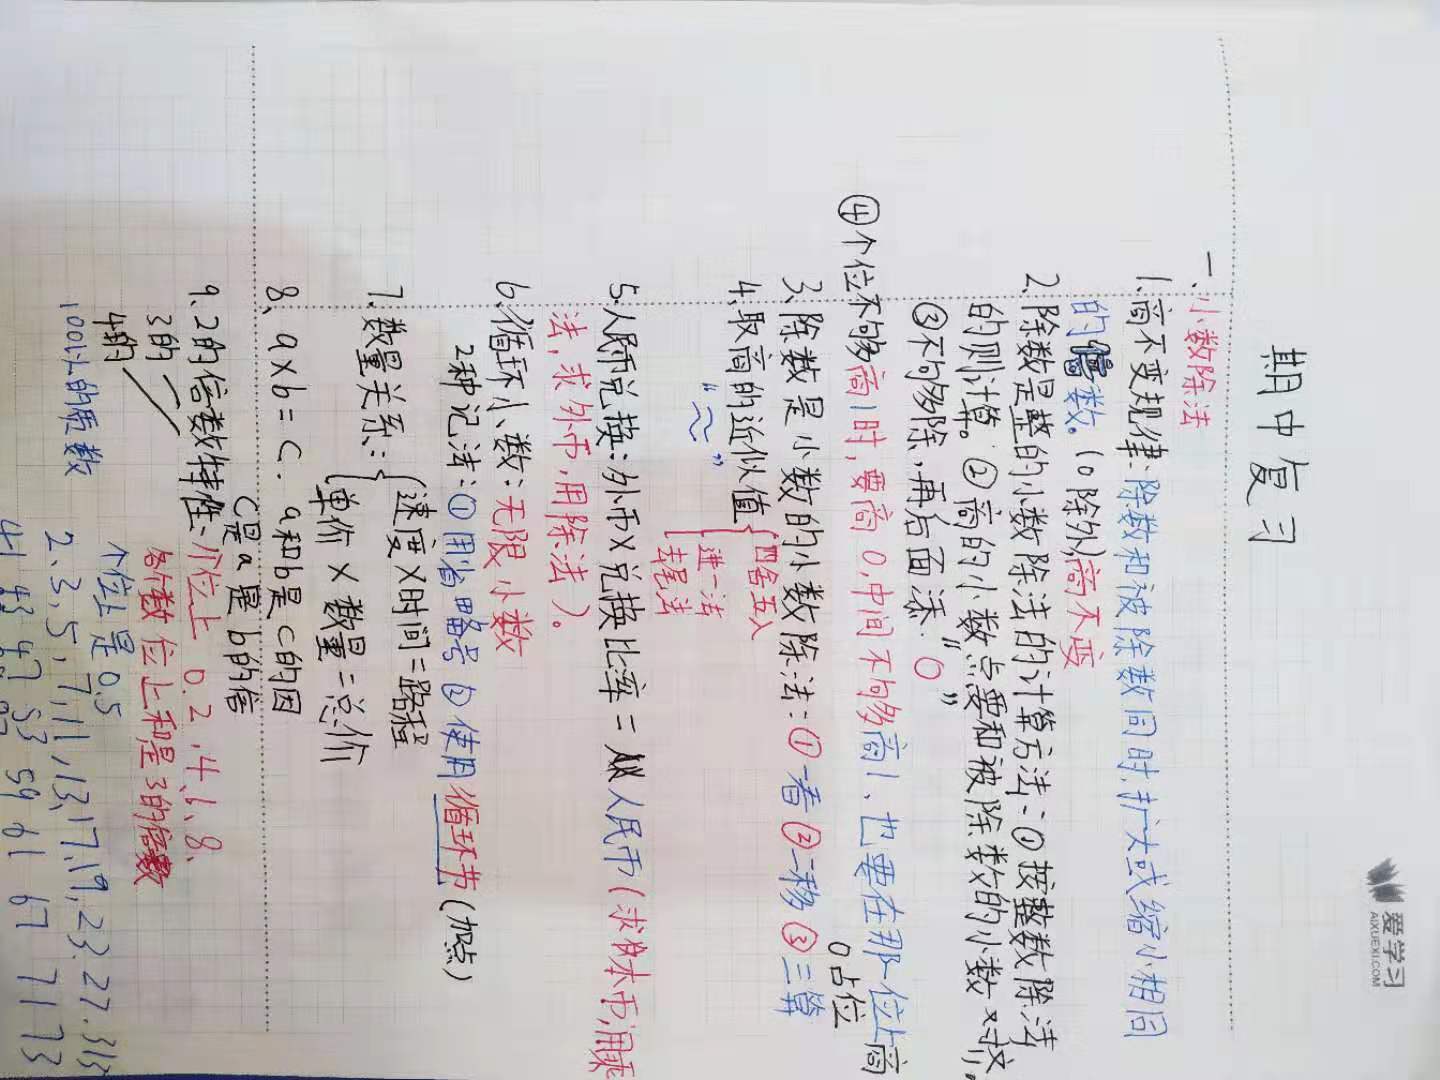 爱学习
AIXUEXI.COM
期中复习
一、小数除法
1.商不变规律:除数和被除数同时扩大或缩小相同
的数。(0除外)商不变
2.除数是整的小数除法的计算方法:①按整数除法
的则计算。②商的小数点要和被除数的小数对齐。
③不够除,再后面添“0”
④个位不够商1时,要商0,中间不够商1、也要在那一位上商
0占位
3、除数是小数的小数除法:①一看②二移③三算
4.取商的近似值{四舍五入
“≈”
进一法
去尾法
5.人民币兑换:外币×兑换比率=人民币(求本币,用乘
法,求外币,用除法)。
6、循环小数:无限小数
2种记法:①用省略号②使用循环节(加点)
7.数量关系:{速度×时间=路程
单价×数量=总价
8、a×b=c.a和b是c的因
c是a是b的倍
9、2的倍数特性:个位上0.2.4.6.8.
3的 各个数位上和是3的倍数
个位上是0.5
100以的质数 2.3.5.7.11.13.17.19.23.27.313
41 43 47 53 59 61 67 71 73